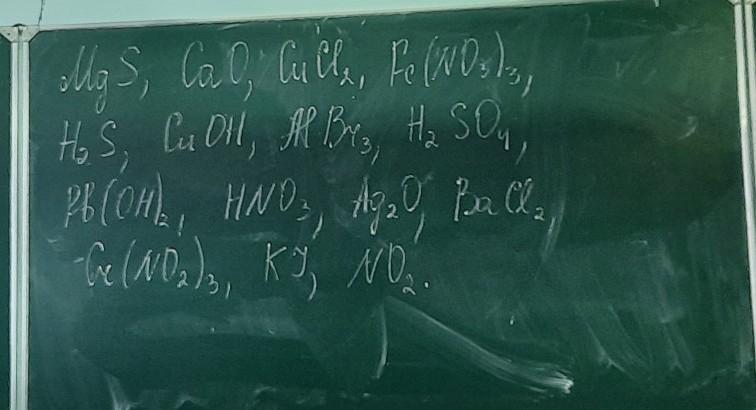 MgS, CaO, CuCl₂, Fe(NO₃)₃,
H₂S, CuOH, AlBr₃, H₂SO₄,
Pb(OH)₂, HNO₃, Ag₂O, BaCl₂,
Cr(NO₂)₃, KJ, NO₂.